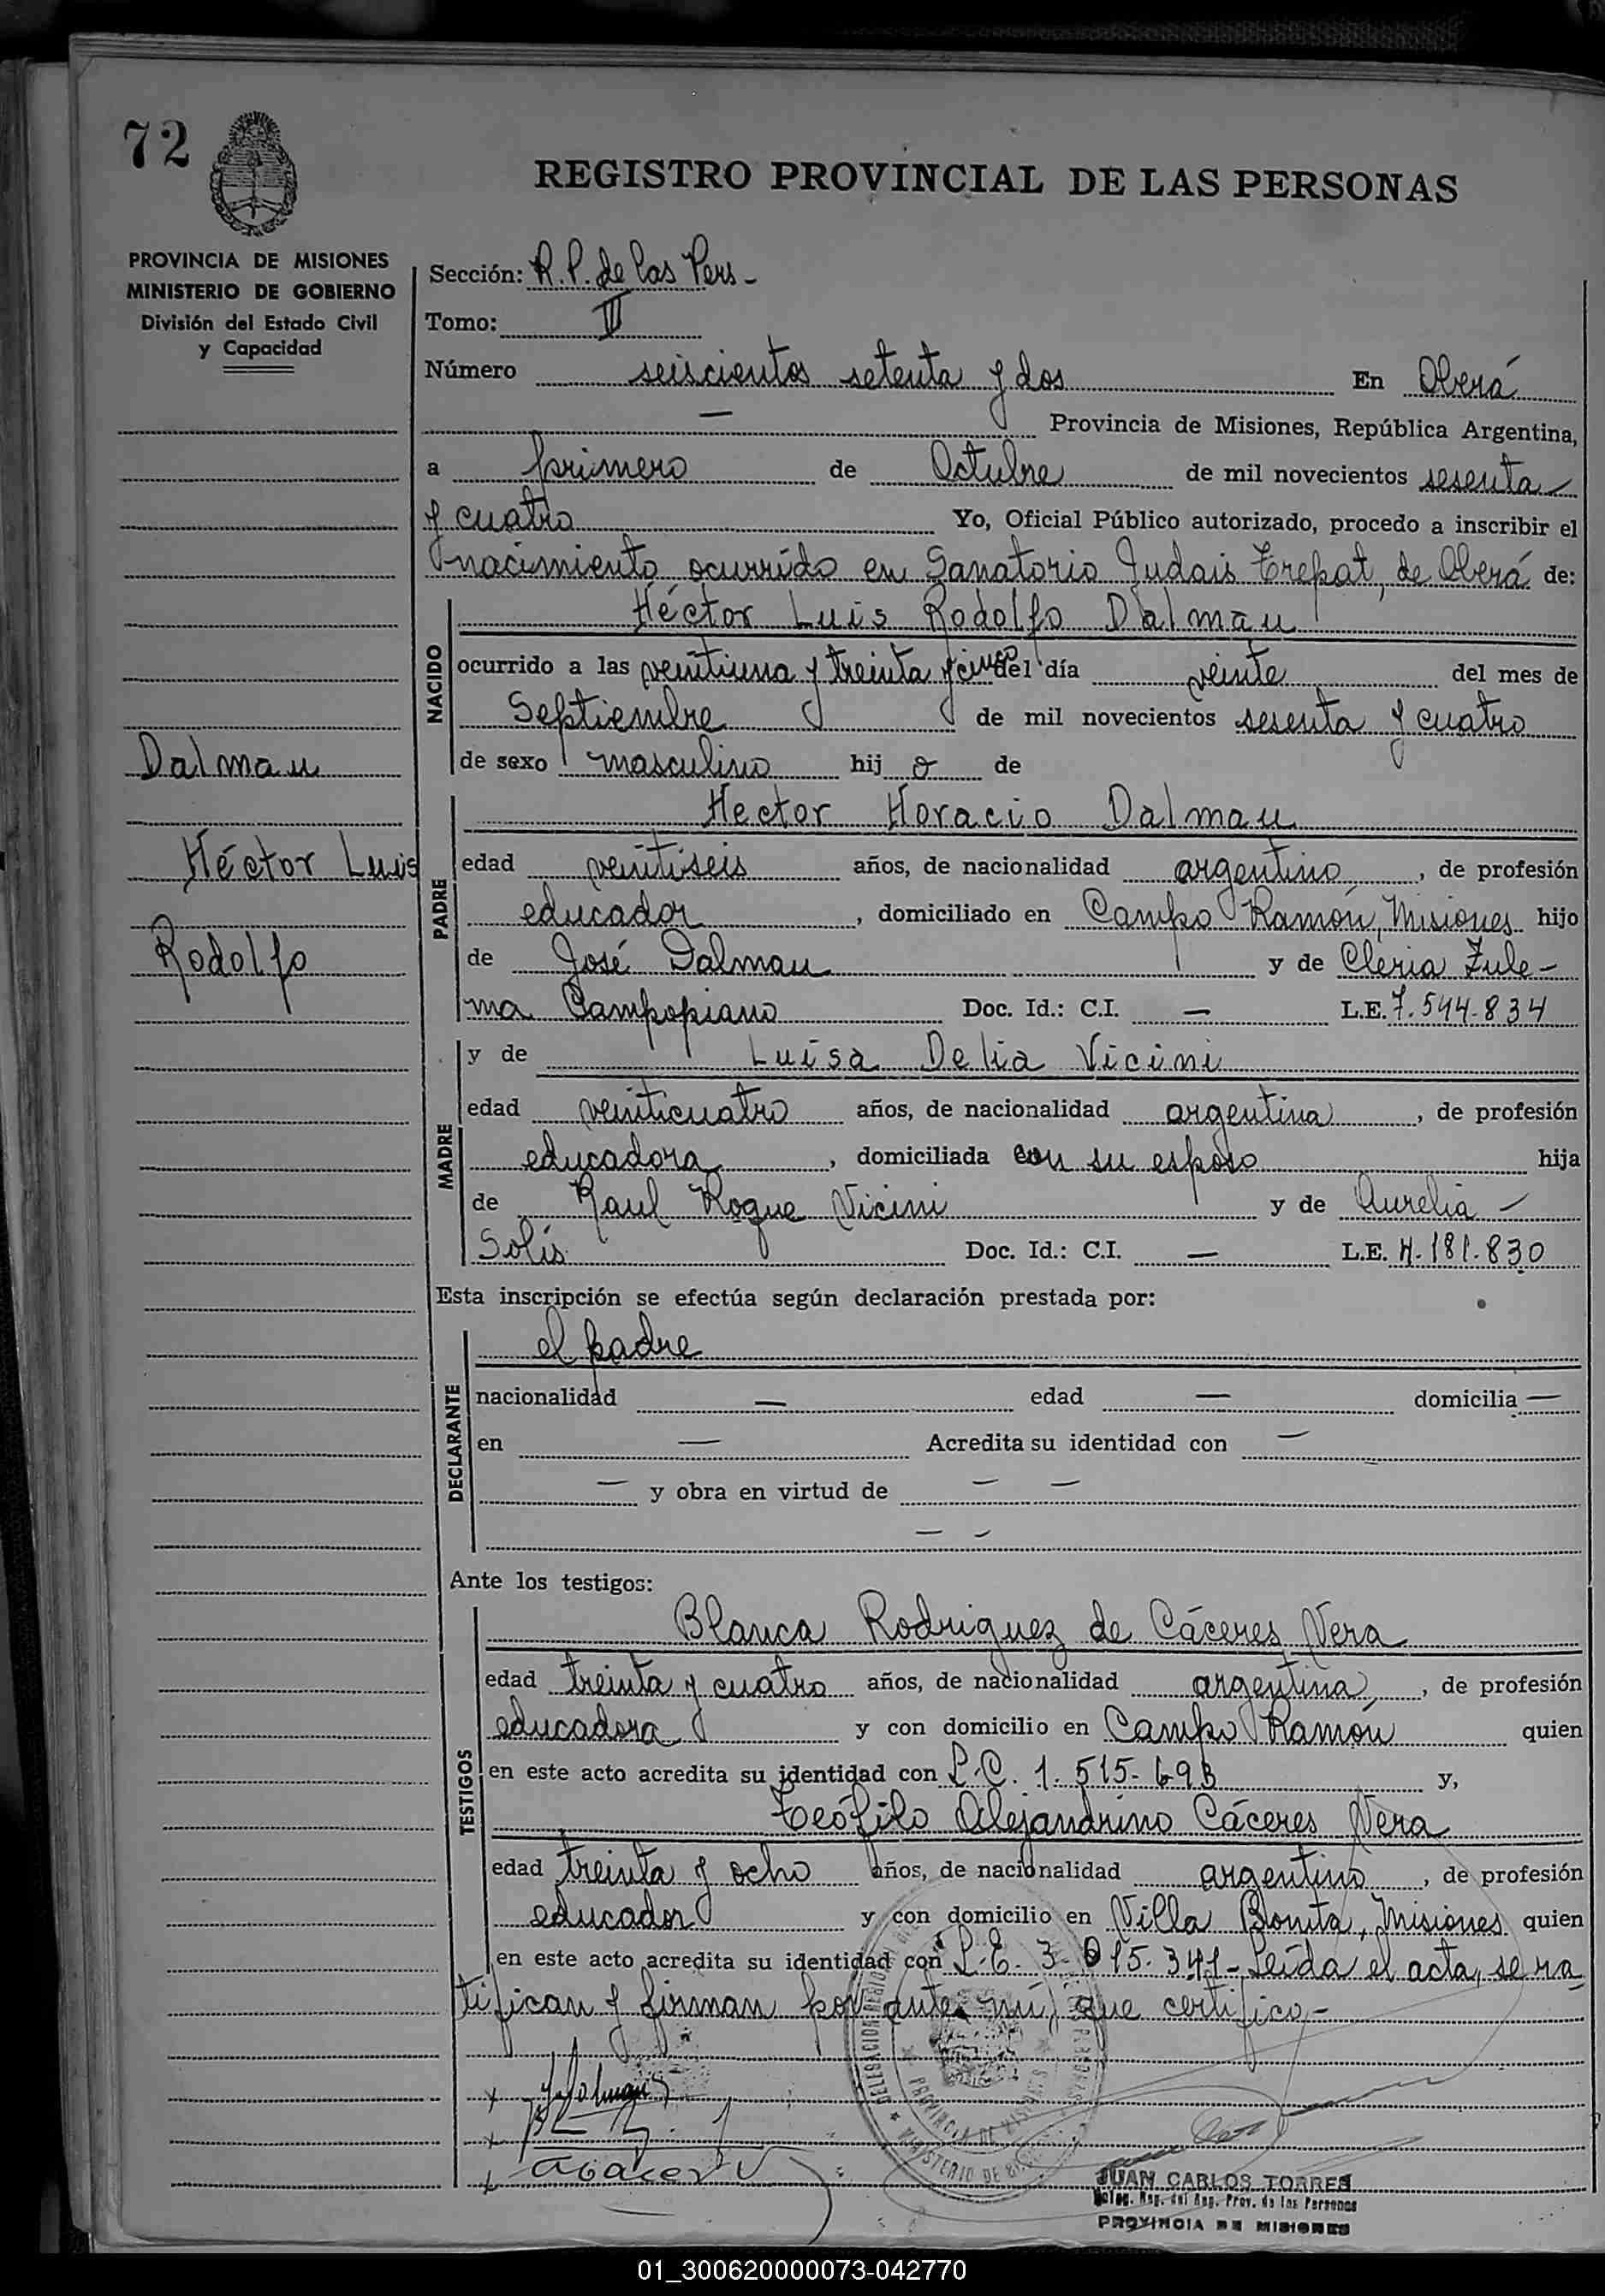 72
REGISTRO PROVINCIAL DE LAS PERSONAS
PROVINCIA DE MISIONES
MINISTERIO DE GOBIERNO
División del Estado Civil
y Capacidad
Sección: R. P. de las Pers -
Tomo: III
Número seiscientos setenta y dos En Oberá
— Provincia de Misiones, República Argentina,
a primero de Octubre de mil novecientos sesenta
y cuatro Yo, Oficial Público autorizado, procedo a inscribir el
nacimiento ocurrido en Sanatorio Trepat, de Oberá de:
NACIDO
Héctor Luis Rodolfo Dalmau
ocurrido a las veintiuna y treinta y cinco del día veinte del mes de
Septiembre de mil novecientos sesenta y cuatro
de sexo masculino hij o de
Dalmau
Héctor Luis
Rodolfo
PADRE
Hector Horacio Dalmau
edad veintiseis años, de nacionalidad argentino, de profesión
educador, domiciliado en Campo Ramón, Misiones hijo
de José Dalmau y de Cleria Zule-
ma Campopiano Doc. Id.: C.I. — L.E. 7.544.834
MADRE
y de Luisa Delia Vicini
edad veinticuatro años, de nacionalidad argentina, de profesión
educadora, domiciliada con su esposo hija
de Raul Roque Vicini y de Aurelia —
Solís Doc. Id.: C.I. — L.E. 4.181.830
Esta inscripción se efectúa según declaración prestada por:
DECLARANTE
el padre
nacionalidad — edad — domicilia —
en — Acredita su identidad con —
— y obra en virtud de — —
— —
Ante los testigos:
TESTIGOS
Blanca Rodriguez de Cáceres Vera
edad treinta y cuatro años, de nacionalidad argentina, de profesión
educadora y con domicilio en Campo Ramón quien
en este acto acredita su identidad con L.C. 1.515.693 y,
Teófilo Alejandrino Cáceres Vera
edad treinta y ocho años, de nacionalidad argentino, de profesión
educador y con domicilio en Villa Bonita, Misiones quien
en este acto acredita su identidad con L.E. 3.015.341- Leída el acta, se ra
tifican y firman por ante mí, que certifico.-
JUAN CARLOS TORRES
Deleg. Reg. del Reg. Prov. de las Personas
PROVINCIA DE MISIONES
01_300620000073-042770